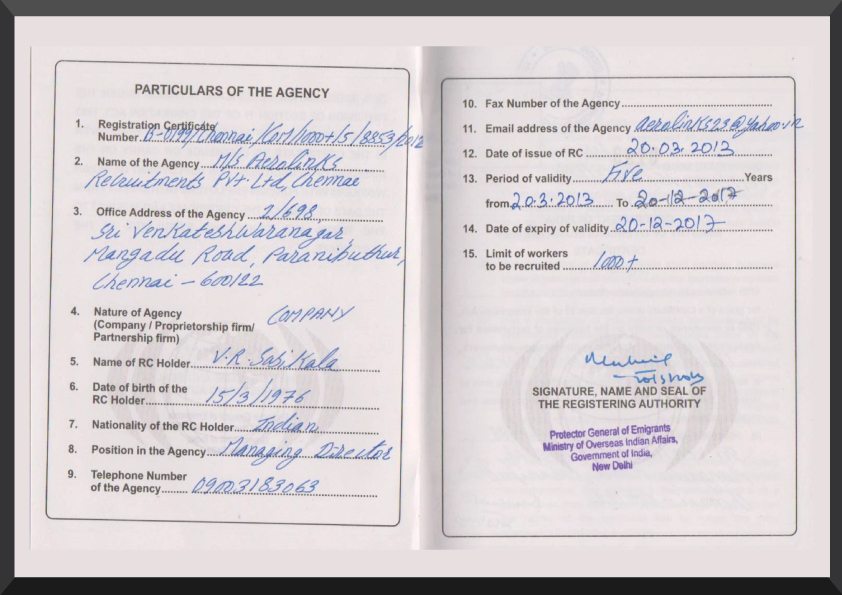 PARTICULARS OF THE AGENCY
1. Registration Certificate
Number B-0199/Chennai/Com/1000+/5/8853/2012
2. Name of the Agency M/s Aerolinks
Recruitments Pvt. Ltd, Chennai
3. Office Address of the Agency 2/698,
Sri Venkateshwaranagar,
Mangadu Road, Paraniputhur,
Chennai - 600122
4. Nature of Agency COMPANY
(Company / Proprietorship firm/
Partnership firm)
5. Name of RC Holder V.R. Sasi Kala
6. Date of birth of the
RC Holder 15/3/1976
7. Nationality of the RC Holder Indian
8. Position in the Agency Managing Director
9. Telephone Number
of the Agency 09003183063
10. Fax Number of the Agency
11. Email address of the Agency aerolinks23@yahoo.in
12. Date of issue of RC 20.03.2013
13. Period of validity Five Years
from 20.3.2013 To 20-12-2017
14. Date of expiry of validity 20-12-2017
15. Limit of workers
to be recruited 1000+
SIGNATURE, NAME AND SEAL OF
THE REGISTERING AUTHORITY
Protector General of Emigrants
Ministry of Overseas Indian Affairs,
Government of India,
New Delhi